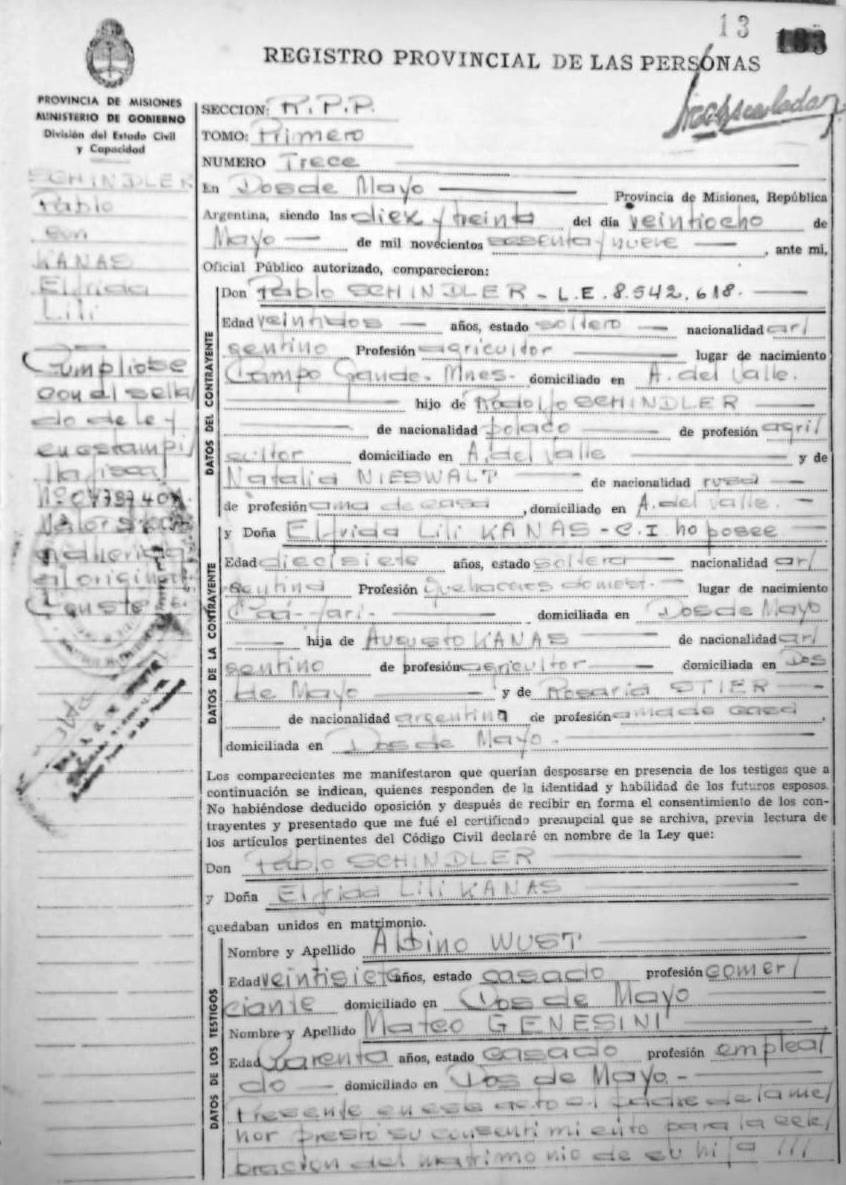 13
REGISTRO PROVINCIAL DE LAS PERSONAS
PROVINCIA DE MISIONES
MINISTERIO DE GOBIERNO
División del Estado Civil
y Capacidad
SCHINDLER
Pablo
con
KANAS
Elfrida
Lili
Cumpliose
con el sella/
do de ley
en estampi/
lla fiscal
Valor
adherida
al original
Conste
SECCION: R.P.P.
TOMO: Primero
NUMERO Trece
En Dos de Mayo Provincia de Misiones, República
Argentina, siendo las diez y treinta del día veintiocho de
Mayo de mil novecientos sesenta y nueve, ante mi,
Oficial Público autorizado, comparecieron:
DATOS DEL CONTRAYENTE
Don Pablo SCHINDLER - L.E. 8.542.618.
Edad veintidos años, estado soltero nacionalidad ar/
gentino Profesión agricultor lugar de nacimiento
Campo Grande. Mnes. domiciliado en A. del Valle.
hijo de Rodolfo SCHINDLER
de nacionalidad polaco de profesión agri/
cultor domiciliado en A. del Valle y de
Natalia NIESWALT de nacionalidad rusa
de profesión ama de casa, domiciliado en A. del Valle.
DATOS DE LA CONTRAYENTE
y Doña Elfrida Lili KANAS - C.I no posee
Edad diecisiete años, estado soltera nacionalidad ar/
gentina Profesión Quehaceres domest. lugar de nacimiento
Caá-Yarí. domiciliada en Dos de Mayo
hija de Augusto KANAS de nacionalidad ar/
gentino de profesión agricultor domiciliada en Dos
de Mayo y de Rosaria STIER
de nacionalidad argentina de profesión ama de casa,
domiciliada en Dos de Mayo.
Los comparecientes me manifestaron que querían desposarse en presencia de los testigos que a
continuación se indican, quienes responden de la identidad y habilidad de los futuros esposos.
No habiéndose deducido oposición y después de recibir en forma el consentimiento de los con-
trayentes y presentado que me fué el certificado prenupcial que se archiva, previa lectura de
los artículos pertinentes del Código Civil declaré en nombre de la Ley que:
Don Pablo SCHINDLER
y Doña Elfrida Lili KANAS
quedaban unidos en matrimonio.
DATOS DE LOS TESTIGOS
Nombre y Apellido Albino WUST
Edad veintisiete años, estado casado profesión comer/
ciante domiciliado en Dos de Mayo
Nombre y Apellido Mateo GENESINI
Edad Cuarenta años, estado casado profesión emplea/
do domiciliado en Dos de Mayo.-
Presente en este acto el padre de la me/
nor presto su consentimiento para la cele/
bracion del matrimonio de su hija ///